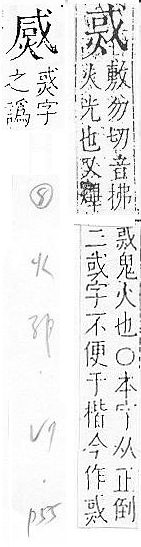 敷勿切音拂
火光也又
鬼火也〇本字从正倒
二或字不便于楷今作
字
之譌
⑧ 火部 · V9 · p55